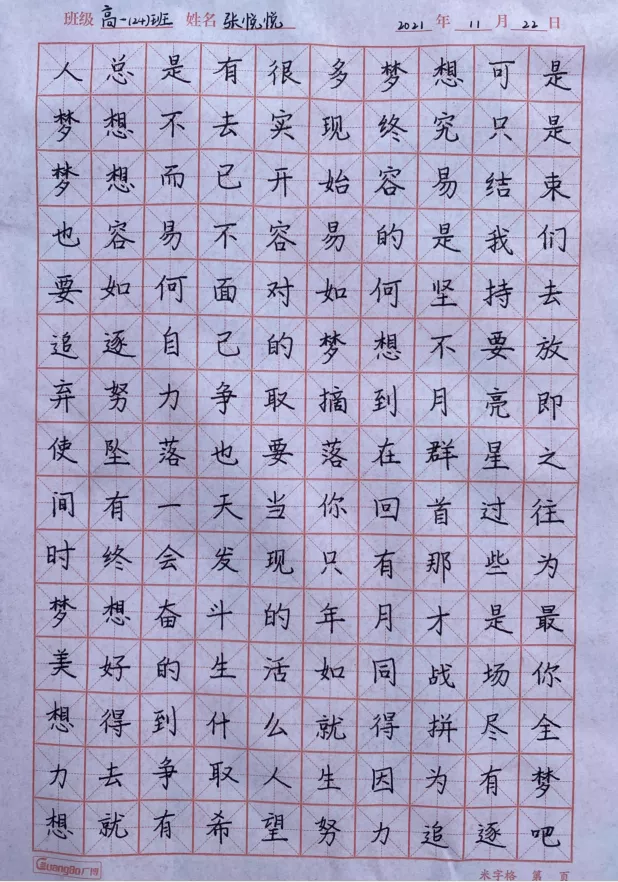 班级 高一(24)班 姓名 张悦悦 2021 年 11 月 22 日
人总是有很多梦想可是
梦想不去实现终究只是
梦想而已开始容易结束
也容易不容易的是我们
要如何面对如何坚持去
追逐自己的梦想不要放
弃努力争取摘到月亮即
使坠落也要落在群星之
间有一天当你回首过往
时终会发现只有那些为
梦想奋斗的年月才是最
美好的生活如同战场你
想得到什么就得拼尽全
力去争取人生因为有梦
想就有希望努力追逐吧
GuangBo广博 米字格 第 页